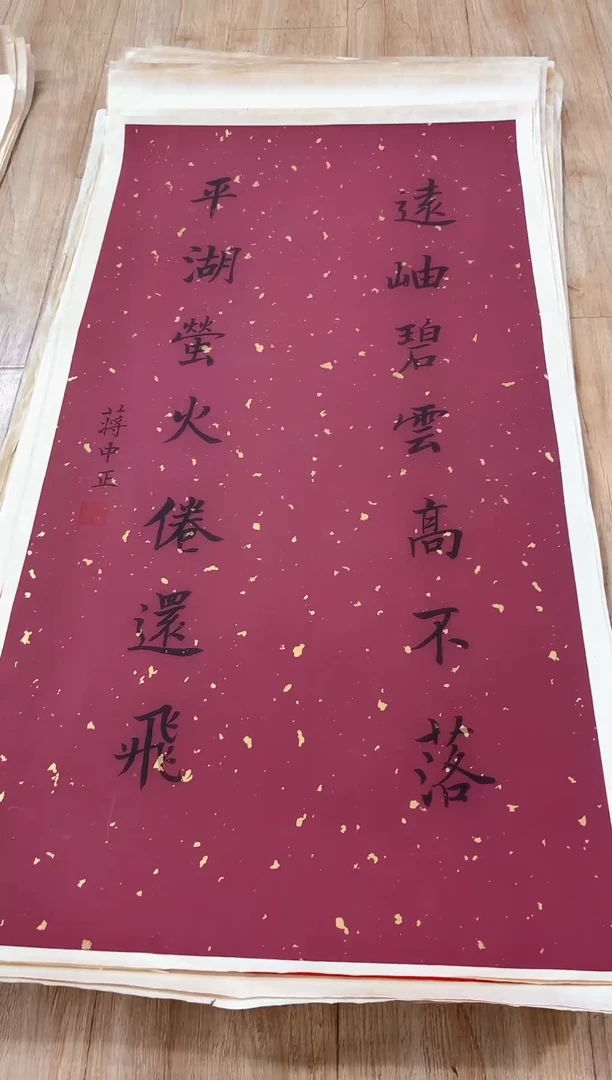 遠岫碧雲高不落
平湖螢火倦還飛
蔣中正